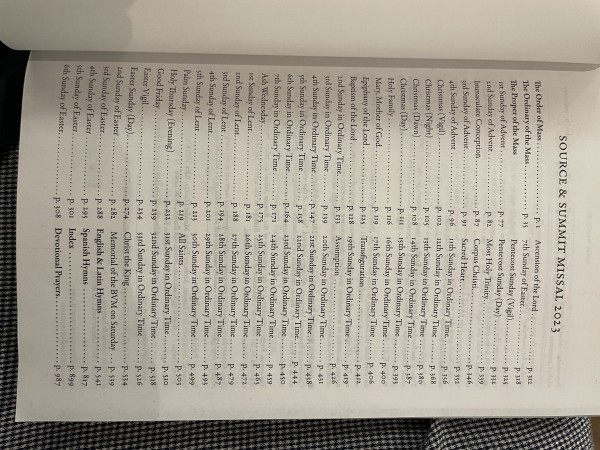 SOURCE & SUMMIT MISSAL 2023
The Order of Mass . . . p. 1
The Ordinary of the Mass . . . p. 15
The Proper of the Mass
1st Sunday of Advent . . . p. 77
2nd Sunday of Advent . . . p. 82
Immaculate Conception . . . p. 87
3rd Sunday of Advent . . . p. 91
4th Sunday of Advent . . . p. 96
Christmas (Vigil) . . . p. 102
Christmas (Night) . . . p. 105
Christmas (Dawn) . . . p. 108
Christmas (Day) . . . p. 111
Holy Family . . . p. 116
Mary, Mother of God . . . p. 119
Epiphany of the Lord . . . p. 123
Baptism of the Lord . . . p. 128
2nd Sunday in Ordinary Time . . . p. 133
3rd Sunday in Ordinary Time . . . p. 139
4th Sunday in Ordinary Time . . . p. 147
5th Sunday in Ordinary Time . . . p. 158
6th Sunday in Ordinary Time . . . p. 164
7th Sunday in Ordinary Time . . . p. 171
Ash Wednesday . . . p. 175
1st Sunday of Lent . . . p. 181
2nd Sunday of Lent . . . p. 188
3rd Sunday of Lent . . . p. 194
4th Sunday of Lent . . . p. 201
5th Sunday of Lent . . . p. 213
Palm Sunday . . . p. 219
Holy Thursday (Evening) . . . p. 232
Good Friday . . . p. 239
Easter Vigil . . . p. 254
Easter Sunday (Day) . . . p. 274
2nd Sunday of Easter . . . p. 282
3rd Sunday of Easter . . . p. 288
4th Sunday of Easter . . . p. 295
5th Sunday of Easter . . . p. 301
6th Sunday of Easter . . . p. 308
Ascension of the Lord . . . p. 312
7th Sunday of Easter . . . p. 318
Pentecost Sunday (Vigil) . . . p. 323
Pentecost Sunday (Day) . . . p. 332
Most Holy Trinity . . . p. 339
Corpus Christi . . . p. 346
Sacred Heart . . . p. 351
11th Sunday in Ordinary Time . . . p. 356
12th Sunday in Ordinary Time . . . p. 368
13th Sunday in Ordinary Time . . . p. 380
14th Sunday in Ordinary Time . . . p. 387
15th Sunday in Ordinary Time . . . p. 393
16th Sunday in Ordinary Time . . . p. 400
17th Sunday in Ordinary Time . . . p. 406
Transfiguration . . . p. 412
19th Sunday in Ordinary Time . . . p. 419
Assumption . . . p. 426
20th Sunday in Ordinary Time . . . p. 431
21st Sunday in Ordinary Time . . . p. 438
22nd Sunday in Ordinary Time . . . p. 444
23rd Sunday in Ordinary Time . . . p. 450
24th Sunday in Ordinary Time . . . p. 459
25th Sunday in Ordinary Time . . . p. 465
26th Sunday in Ordinary Time . . . p. 472
27th Sunday in Ordinary Time . . . p. 479
28th Sunday in Ordinary Time . . . p. 487
29th Sunday in Ordinary Time . . . p. 493
30th Sunday in Ordinary Time . . . p. 499
All Saints . . . p. 503
31st Sunday in Ordinary Time . . . p. 510
32nd Sunday in Ordinary Time . . . p. 518
33rd Sunday in Ordinary Time . . . p. 526
Christ the King . . . p. 534
Memorial of the BVM on Saturday . . . p. 539
English & Latin Hymns . . . p. 541
Spanish Hymns . . . p. 827
Index . . . p. 899
Devotional Prayers . . . p. 987